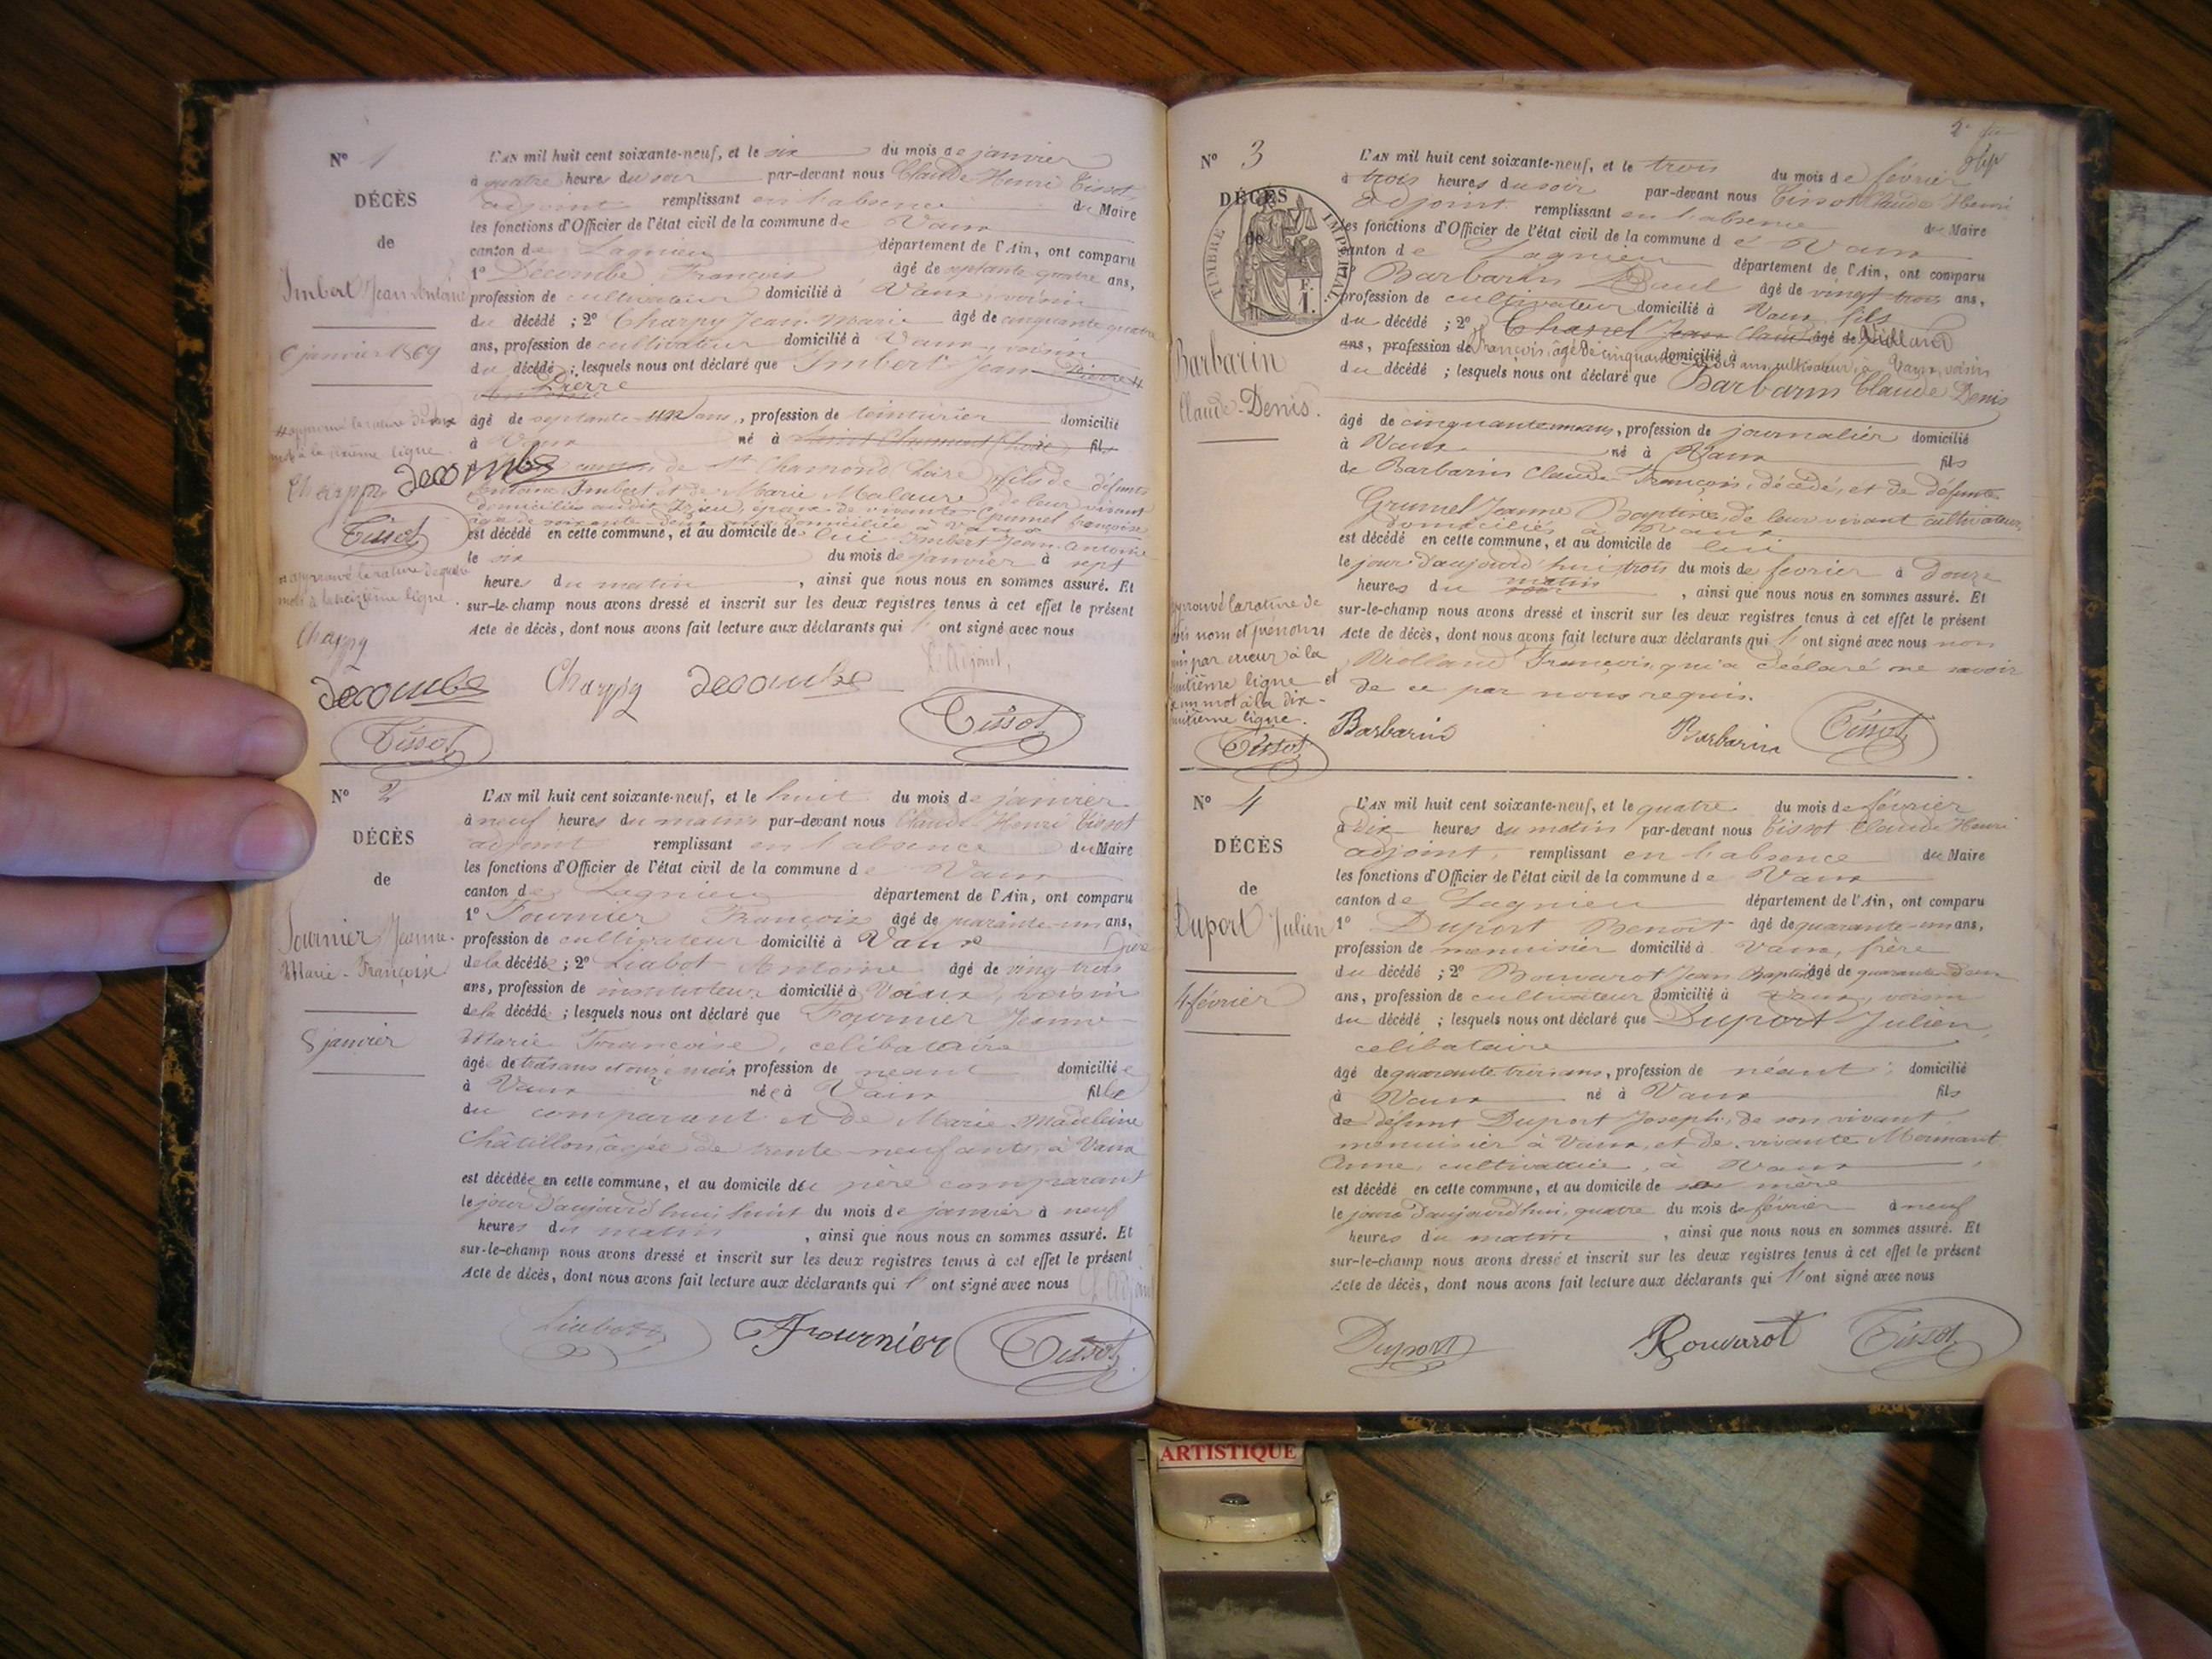 N° 1
DÉCÈS
de
Imbert Jean Antoine
6 janvier 1869
L'AN mil huit cent soixante-neuf, et le six du mois de janvier
à quatre heures du soir par-devant nous Claude Henri Tissot
adjoint remplissant en l'absence du Maire
les fonctions d'Officier de l'état civil de la commune de Vaux
canton de Lagnieu département de l'Ain, ont comparu
1° Décombe François âgé de septante quatre ans,
profession de cultivateur domicilié à Vaux, voisin
du décédé ; 2° Charpy Jean-Marie âgé de cinquante quatre
ans, profession de cultivateur domicilié à Vaux, voisin
du décédé ; lesquels nous ont déclaré que Imbert Jean Pierre
Pierre
Antoine
âgé de septante-un ans, profession de teinturier domicilié
à Vaux né à Saint Chamond (Loire) fils
canton de St Chamond Loire, fils de défunts
Antoine Imbert et de Marie Malaure, de leur vivant
domiciliés audit époux de vivante Grumel françoise
âgée de soixante-deux ans domiciliée à Vaux
est décédé en cette commune, et au domicile de lui Imbert Jean Antoine
le six du mois de janvier à sept
heures du matin, ainsi que nous nous en sommes assuré. Et
sur-le-champ nous avons dressé et inscrit sur les deux registres tenus à cet effet le présent
Acte de décès, dont nous avons fait lecture aux déclarants qui l'ont signé avec nous
L'Adjoint,
approuvé la rature de deux
mots à la ligne.
Charpy decombe
Tissot
approuvé la rature de quatre
mots à la treizième ligne.
Charpy
decombe Charpy decombe
Tissot Tissot
N° 2
DÉCÈS
de
Fournier Jeanne-
Marie-Françoise
8 janvier
L'AN mil huit cent soixante-neuf, et le huit du mois de janvier
à neuf heures du matin par-devant nous Claude Henri Tissot
adjoint remplissant en l'absence du Maire
les fonctions d'Officier de l'état civil de la commune de Vaux
canton de Lagnieu département de l'Ain, ont comparu
1° Fournier François âgé de quarante-un ans,
profession de cultivateur domicilié à Vaux père
de la décédée ; 2° Liabot Antoine âgé de vingt trois
ans, profession de instituteur domicilié à Vaux, voisin
de la décédée ; lesquels nous ont déclaré que Fournier Jeanne
Marie Françoise, célibataire
âgée de trois ans et onze mois profession de néant domiciliée
à Vaux née à Vaux fille
du comparant et de Marie Madeleine
Châtillon, âgée de trente-neuf ans, à Vaux
est décédée en cette commune, et au domicile du père comparant
le jour d'aujourd'hui huit du mois de janvier à neuf
heures du matin, ainsi que nous nous en sommes assuré. Et
sur-le-champ nous avons dressé et inscrit sur les deux registres tenus à cet effet le présent
Acte de décès, dont nous avons fait lecture aux déclarants qui l'ont signé avec nous L'Adjoint
Liabot Fournier Tissot
2e
N° 3
DÉCÈS
de
TIMBRE IMPÉRIAL
1 F.
Barbarin
Claude-Denis.
L'AN mil huit cent soixante-neuf, et le trois du mois de février
à trois heures du soir par-devant nous Tissot Claude Henri
adjoint remplissant en l'absence du Maire
les fonctions d'Officier de l'état civil de la commune de Vaux
canton de Lagnieu département de l'Ain, ont comparu
1° Barbarin Paul âgé de vingt trois ans,
profession de cultivateur domicilié à Vaux, fils
du décédé ; 2° Chapel Jean Claude âgé de Violland
ans, profession de François, âgé de cinquante domicilié à ans, cultivateur, à Vaux, voisin
du décédé ; lesquels nous ont déclaré que Barbarin Claude Denis
âgé de cinquante ans, profession de journalier domicilié
à Vaux né à Vaux fils
de Barbarin Claude François, décédé, et de défunte
Grumel Jeanne Baptise, de leur vivant cultivateurs
domiciliés à Vaux
est décédé en cette commune, et au domicile de lui
le jour d'aujourd'hui trois du mois de février à douze
heures du matin, ainsi que nous nous en sommes assuré. Et
sur-le-champ nous avons dressé et inscrit sur les deux registres tenus à cet effet le présent
Acte de décès, dont nous avons fait lecture aux déclarants qui l'ont signé avec nous non
Violland François, qui a déclaré ne savoir
de ce par nous requis.
approuvé la rature de
trois nom et prénoms
mis par erreur à la
huitième ligne et
d'un mot à la dix-
huitième ligne.
Tissot Barbarin Barbarin Tissot
N° 4
DÉCÈS
de
Duport Julien
4 février
L'AN mil huit cent soixante-neuf, et le quatre du mois de février
à dix heures du matin par-devant nous Tissot Claude Henri
adjoint, remplissant en l'absence du Maire
les fonctions d'Officier de l'état civil de la commune de Vaux
canton de Lagnieu département de l'Ain, ont comparu
1° Duport Benoit âgé de quarante-un ans,
profession de menuisier domicilié à Vaux, frère
du décédé ; 2° Bouvarot Jean Baptiste âgé de quarante deux
ans, profession de cultivateur domicilié à Vaux, voisin
du décédé ; lesquels nous ont déclaré que Duport Julien,
célibataire
âgé de quarante trois ans, profession de néant ; domicilié
à Vaux né à Vaux fils
de défunt Duport Joseph, de son vivant
menuisier à Vaux, et de vivante Mermant
Anne, cultivatrice, à Vaux
est décédé en cette commune, et au domicile de sa mère
le jour d'aujourd'hui, quatre du mois de février à neuf
heures du matin, ainsi que nous nous en sommes assuré. Et
sur-le-champ nous avons dressé et inscrit sur les deux registres tenus à cet effet le présent
Acte de décès, dont nous avons fait lecture aux déclarants qui l'ont signé avec nous
Duport Bouvarot Tissot
ARTISTIQUE